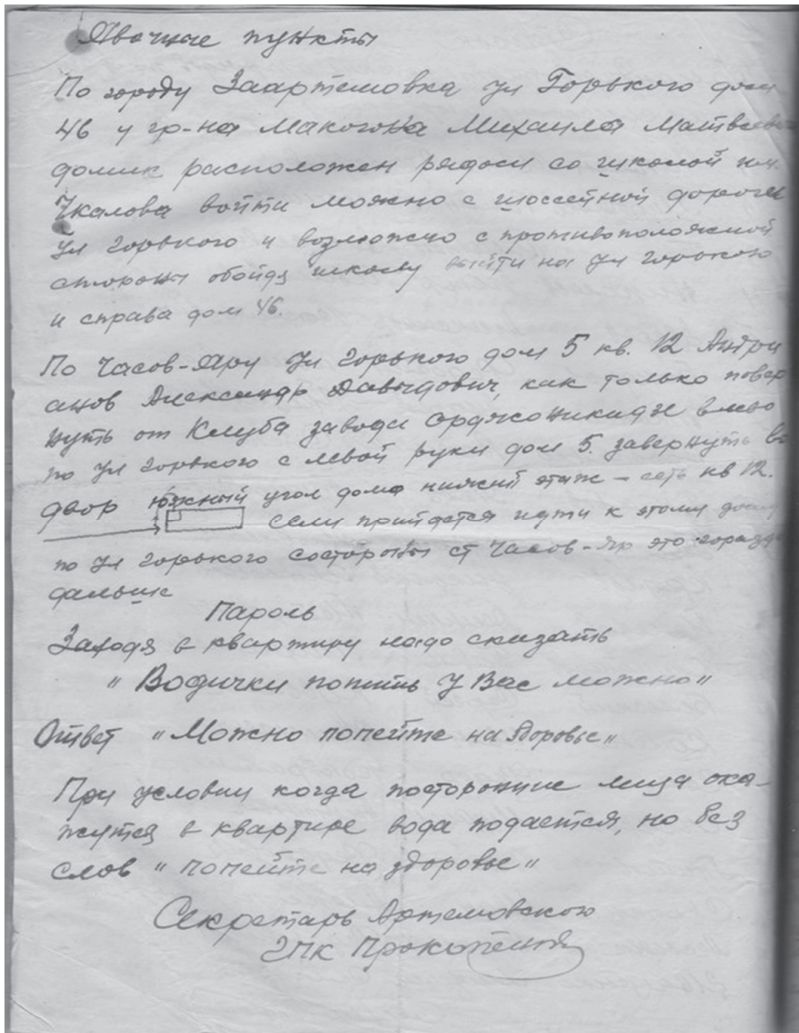 Явочные пункты
По городу Заартемовка ул Горького дом
46 у гр-на Макогона Михаила Матвеевича
домик расположен рядом со школой им.
Чкалова войти можно с шоссейной дороги
ул Горького и возможно с противоположной
стороны обойдя школу выйти на ул Горького
и справа дом 46.
По Часов-Яру ул Горького дом 5 кв. 12 Антри
анов Александр Давыдович, как только повер
нуть от Клуба завода Орджоникидзе влево
по ул Горького с левой руки дом 5. завернуть во
двор южный угол дома нижний этаж – есть кв 12.
если прийдется идти к этому дому
по ул Горького со стороны ст Часов-Яр это гораздо
дальше
Пароль
Заходя в квартиру надо сказать
"Водички попить у Вас можно"
Ответ "Можно попейте на здоровье"
При условии когда посторонние лица ока-
жутся в квартире вода подается, но без
слов "попейте на здоровье"
Секретарь Артемовского
ГПК Прокопенко